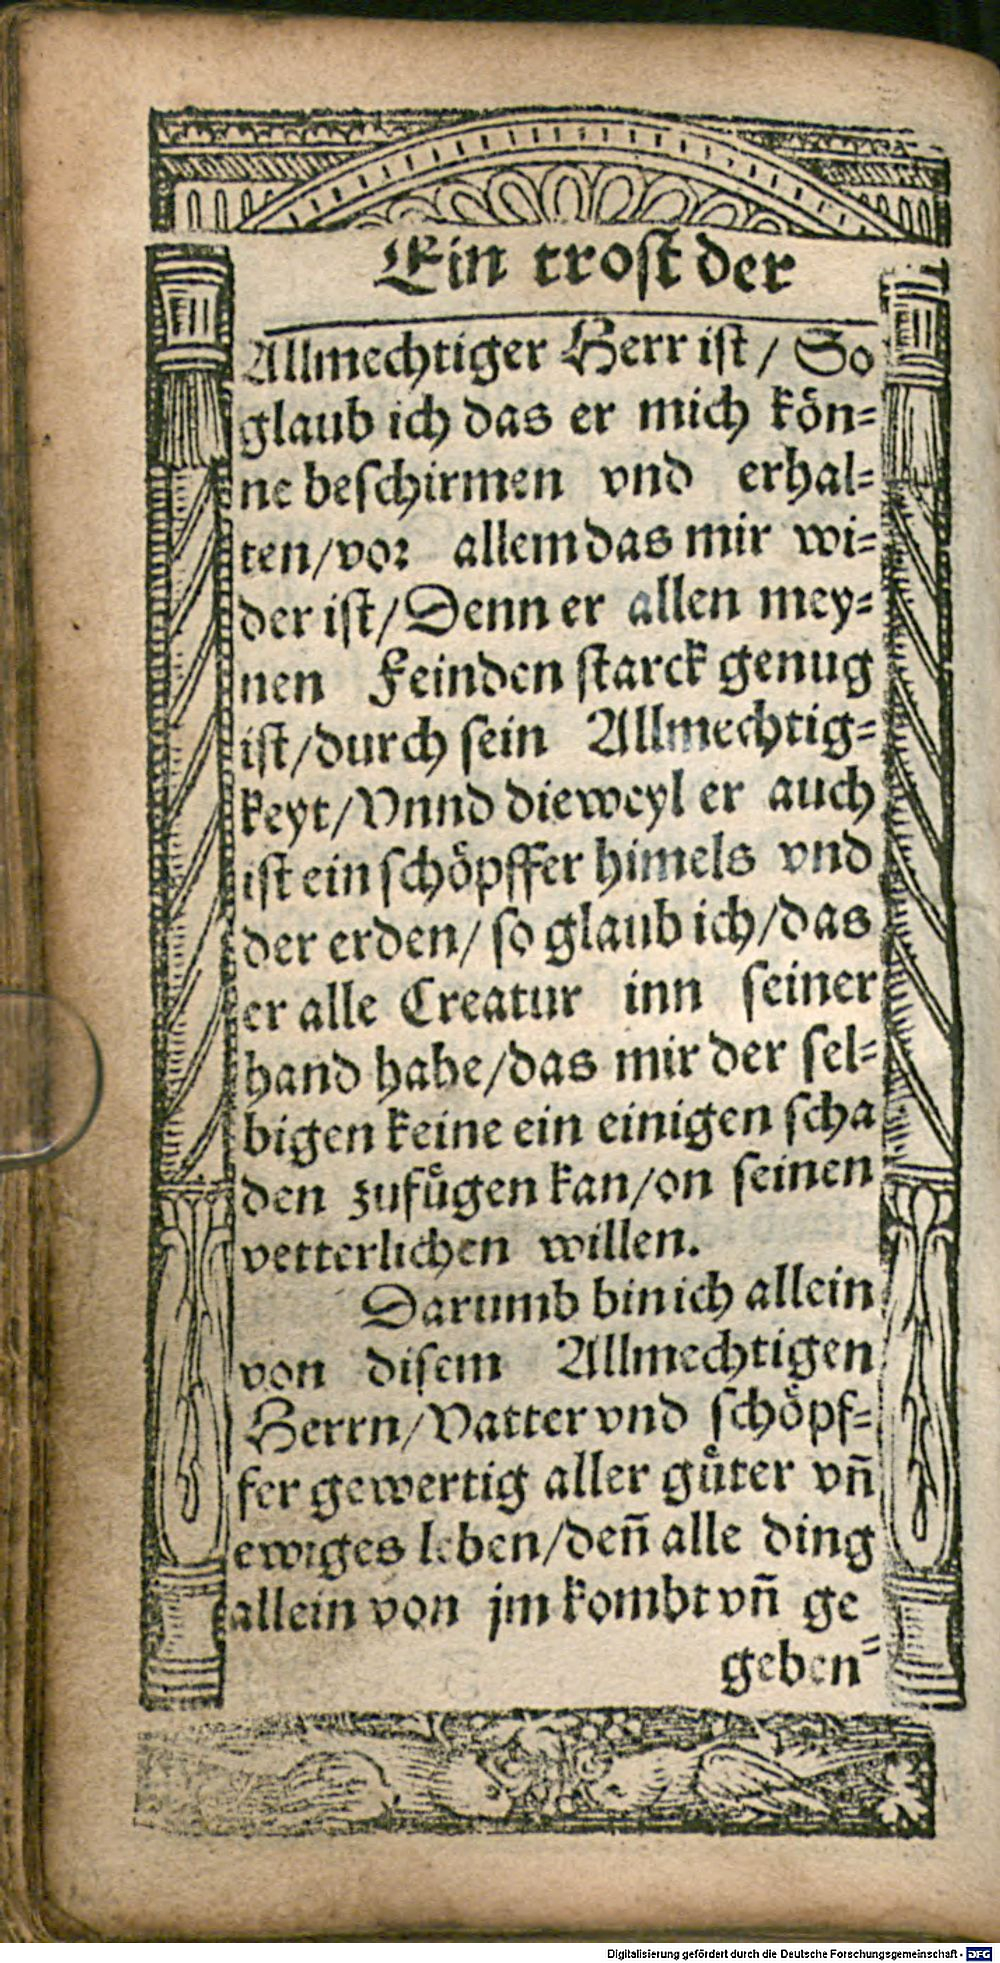 Ein trost der
Allmechtiger Herr ist / So
glaub ich das er mich kön=
ne beschirmen vnd erhal=
ten/vor allem das mir wi=
der ist/Denn er allen mey=
nen Feinden starck genug
ist/durch sein Allmechtig=
keyt/Vnnd dieweyl er auch
ist ein schöpffer himels vnd
der erden/ so glaub ich/das
er alle Creatur inn seiner
hand habe/das mir der sel=
bigen keine ein einigen scha
den zufuͤgen kan/on seinen
vetterlichen willen.
Darumb bin ich allein
von disem Allmechtigen
Herrn/Vatter vnd schöpf=
fer gewertig aller guͤter vñ
ewiges leben/deñ alle ding
allein von jm kombt vñ ge
geben=
Digitalisierung gefördert durch die Deutsche Forschungsgemeinschaft - DFG